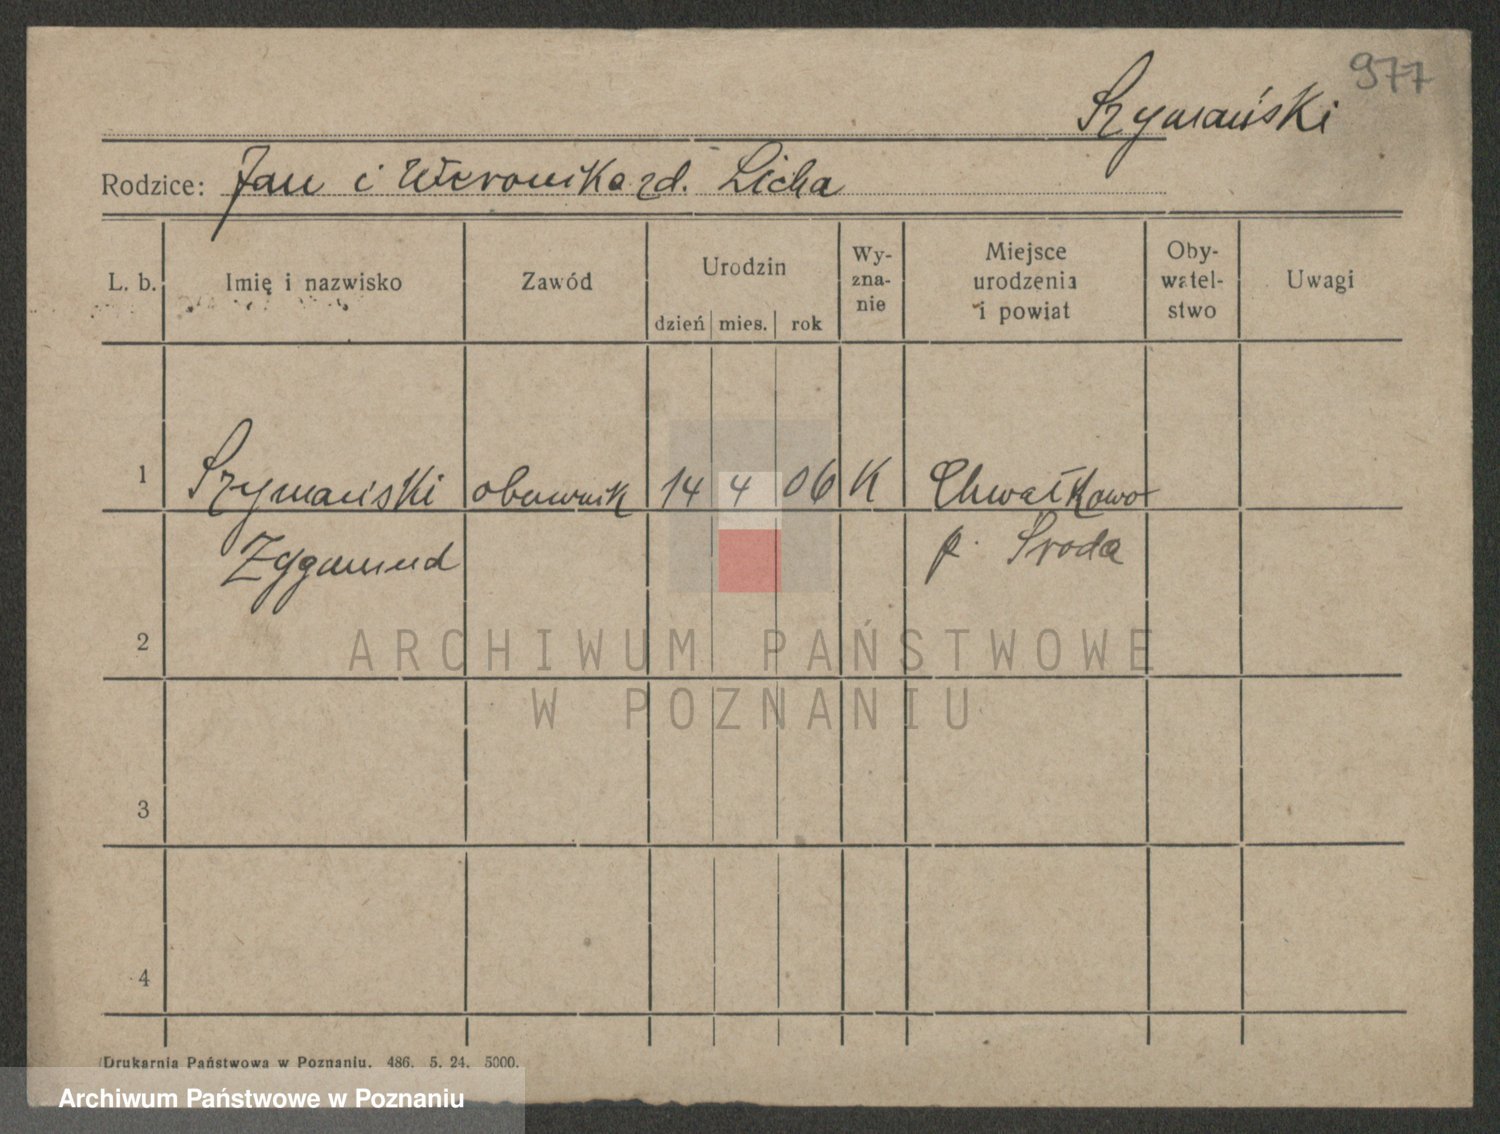 977
Szymański
Rodzice: Jan i Weronika zd. Licha
L. b. Imię i nazwisko Zawód Urodzin dzień mies. rok Wyznanie Miejsce urodzenia i powiat Obywatelstwo Uwagi
1 Szymański 14 4 06 K Chwałkowo
Zygmund p. Środa
2
ARCHIWUM PAŃSTWOWE
W POZNANIU
3
4
Drukarnia Państwowa w Poznaniu. 486. 5. 24. 5000.
Archiwum Państwowe w Poznaniu